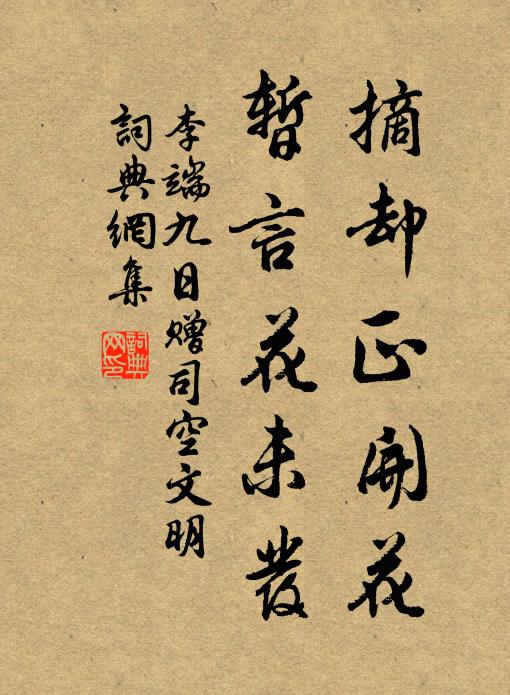 摘却正開花
暫言花未發
李端九日赠司空文明
詞典網集
詞典網印